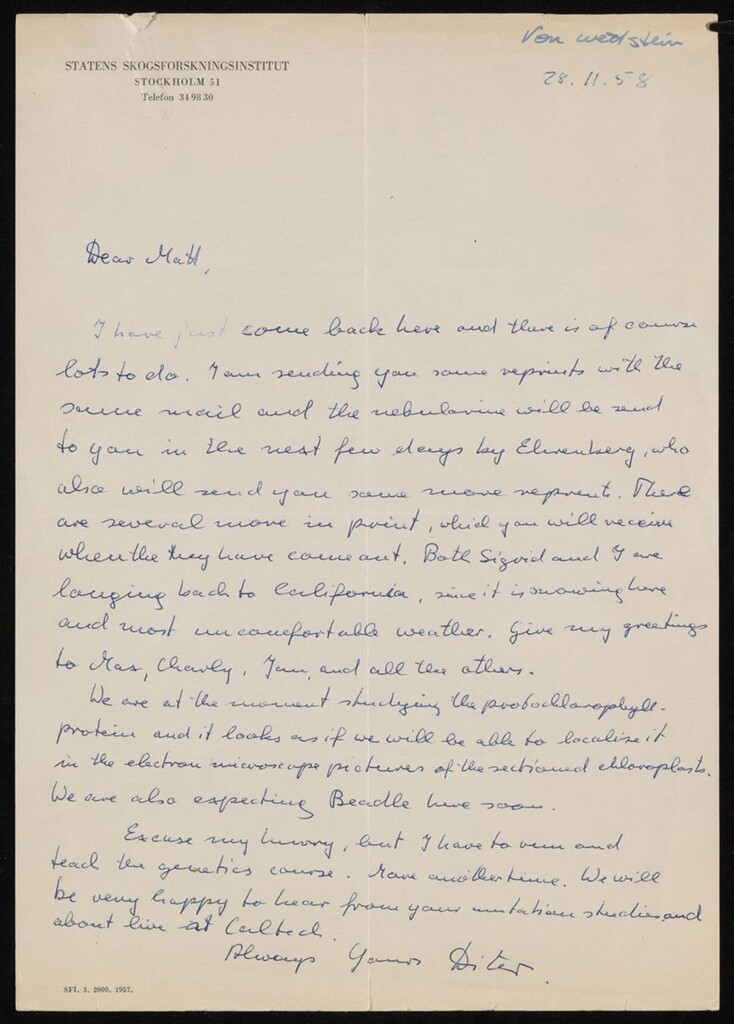 Von wedstein
28.11.58
STATENS SKOGSFORSKNINGSINSTITUT
STOCKHOLM 51
Telefon 34 98 30
Dear Matt,
I have just come back here and there is of course
lots to do. I am sending you some reprints with the
same mail and the nebularine will be send
to you in the next few days by Ehrenberg, who
also will send you some more reprents. There
are several more in print, which you will receive
when the they have come out. Both Sigrid and I are
longing back to California, since it is snowing here
and most uncomfortable weather. Give my greetings
to Max, Charly, Jan, and all the others.
We are at the moment studying the protochlorophyll-
protein and it looks as if we will be able to localize it
in the electron microscope pictures of the sectioned chloroplasts.
We are also expecting Beadle here soon.
Excuse my hurry, but I have to run and
teach the genetics course. More another time. We will
be very happy to hear from your mutation studies and
about live at Caltech.
Always Yours Diter.
SFI. 3. 2000. 1957.